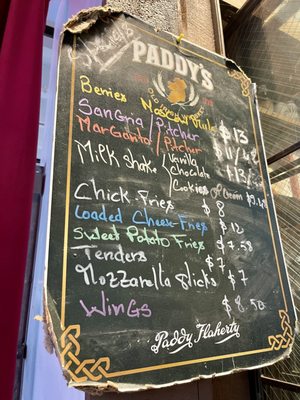 PADDY'S
Berries Mule $13
Sangria/Pitcher $11/4
Margarita/Pitcher $13
Milk Shake/Vanilla
Chocolate
/Cookies & Cream
Chick Fries $8
Loaded Cheese Fries $12
Sweet Potato Fries $7.58
Tenders $7
Mozzarella Sticks $7
Wings $8.50
Paddy Flaherty